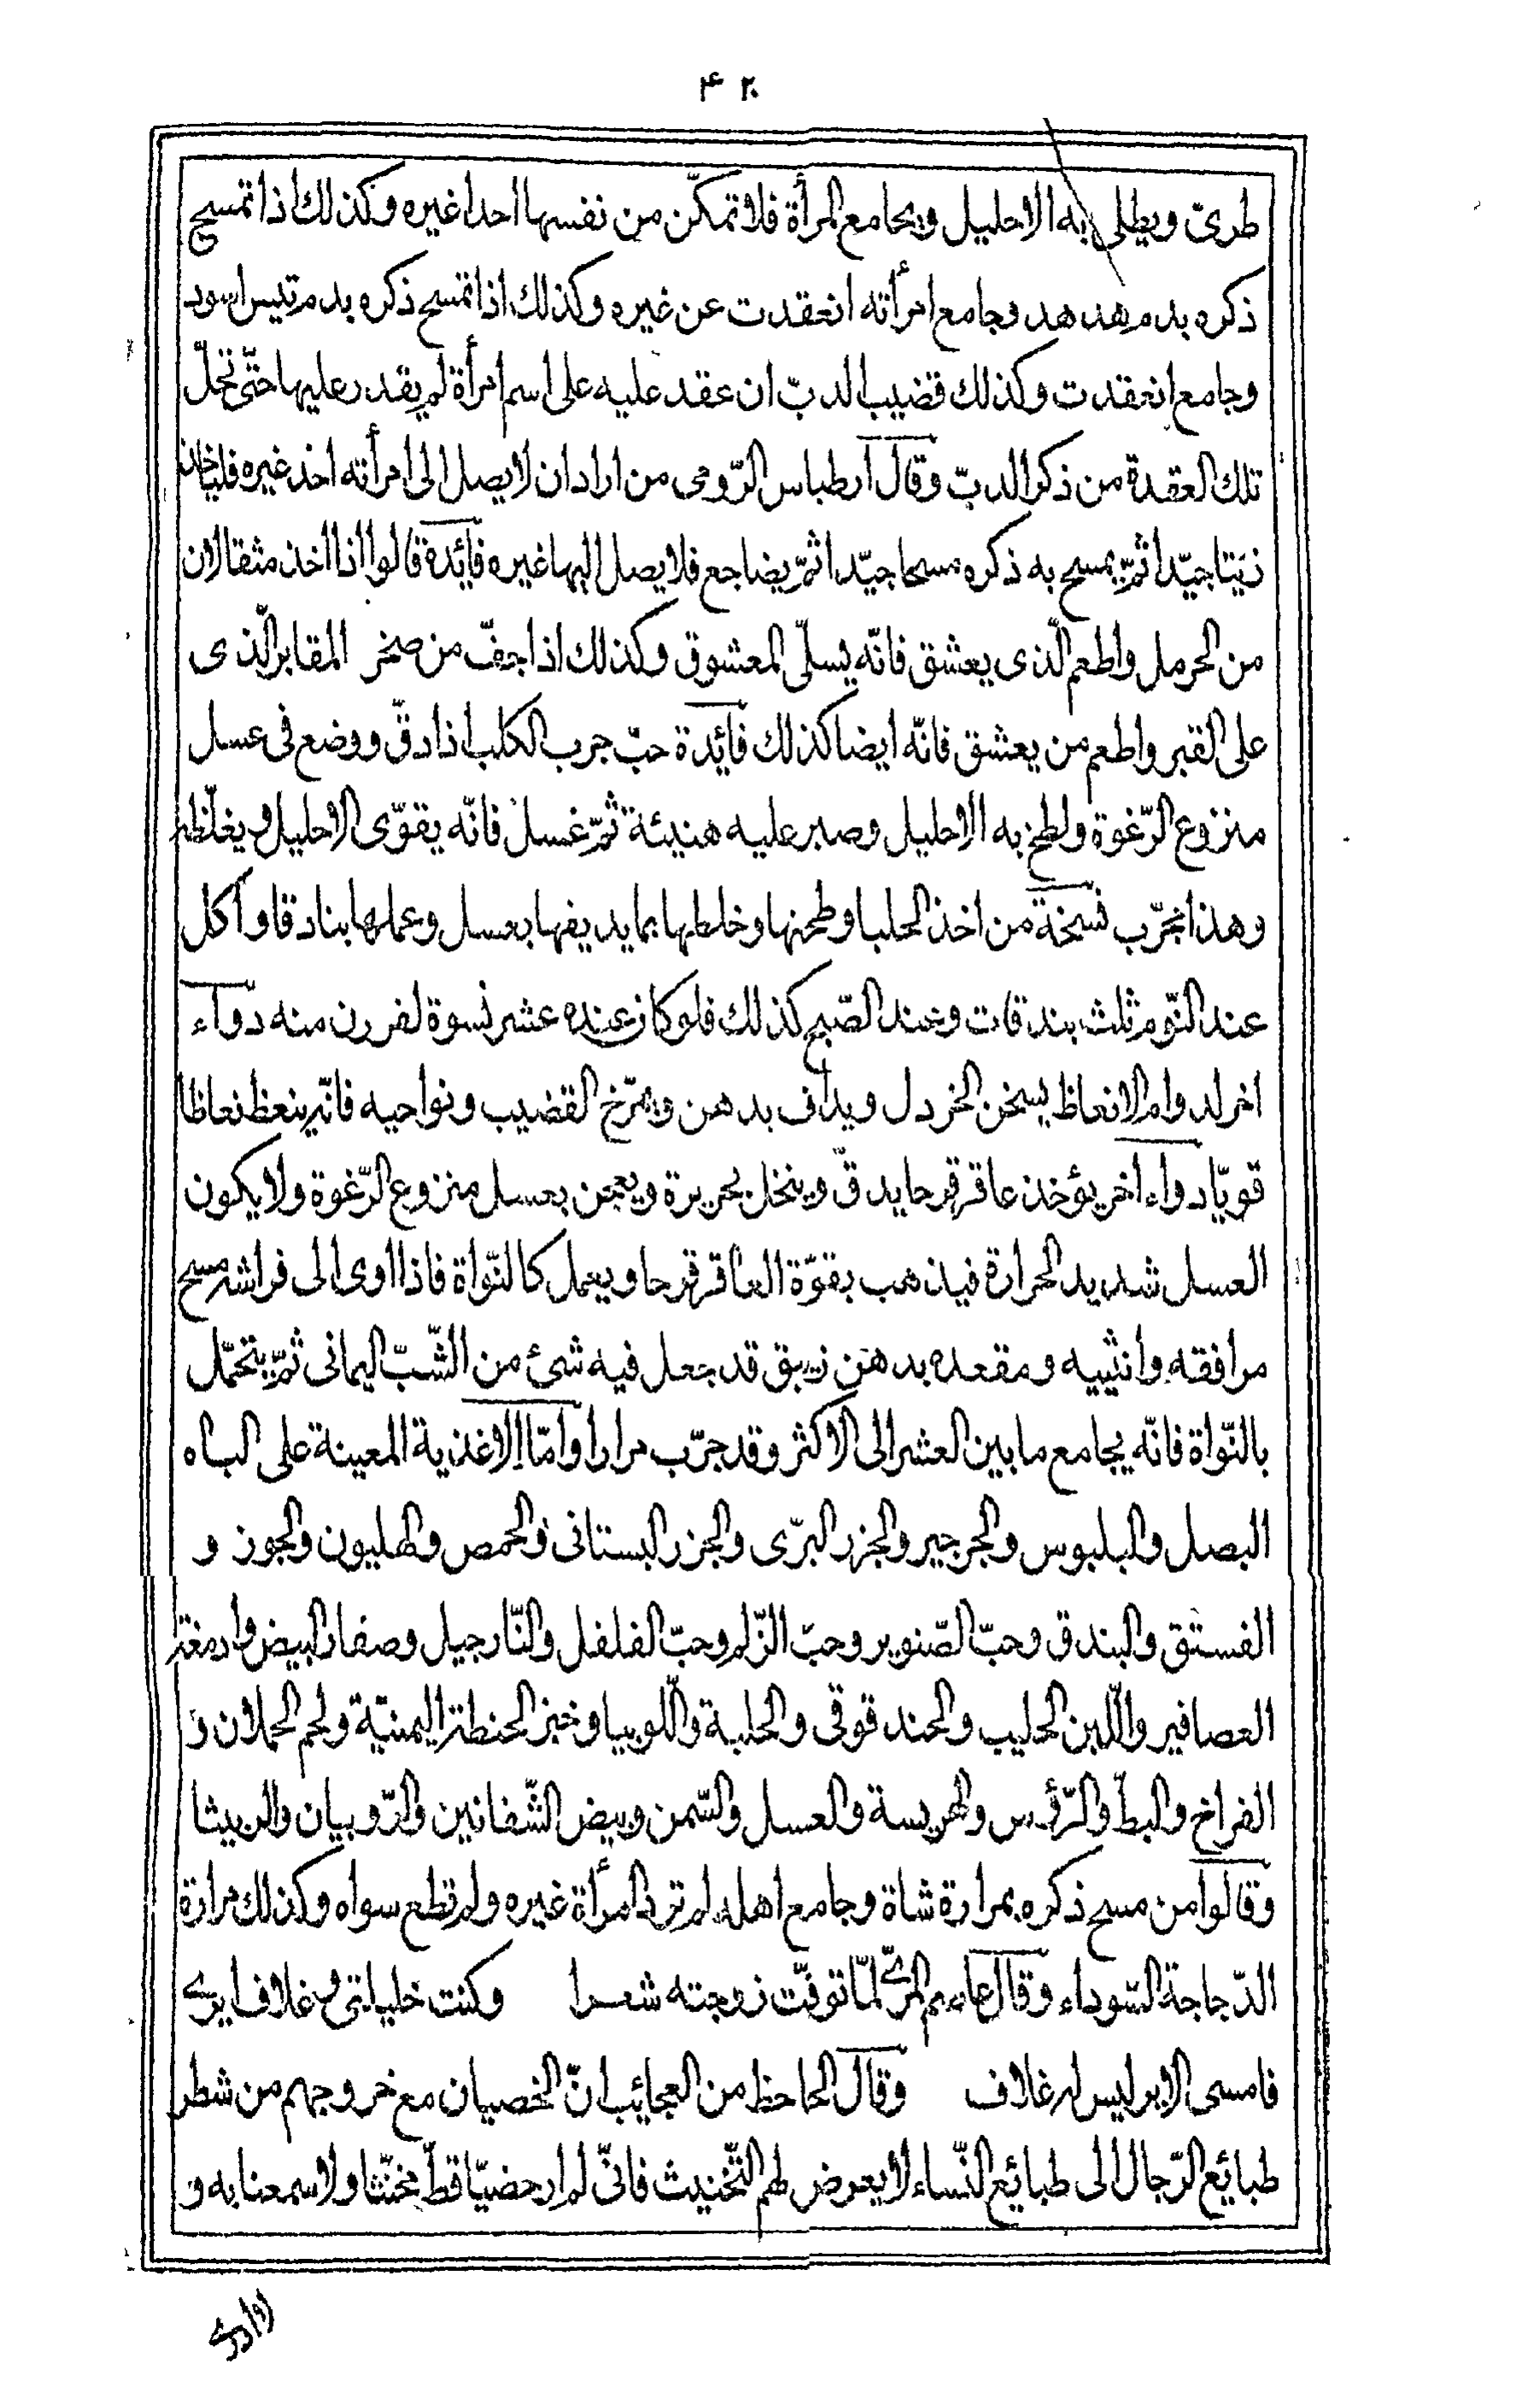 ۴۲۰
طرىّ ويطلى به الاحليل ويجامع المرأة فلا تمكّن من نفسها احدا غيره وكذلك اذا تمسح
ذكره بدم هدهد وجامع امرأته انعقدت عن غيره وكذلك اذا تمسح ذكره بدم تيس اسود
وجامع انعقدت وكذلك قضيب الدبّ ان عقد عليه على اسم امرأة لم يقدر عليها حتّى تحلّ
تلك العقدة من ذكر الدبّ وقال ارطباس الرّومى من اراد ان لا يصل الى امرأته احد غيره فلياخذ
زيتا جيّدا ثمّ يمسح به ذكره مسحا جيّدا ثمّ يضاجع فلا يصل اليها غيره فائدة قالوا اذا اخذ مثقالان
من الحرمل واطعم الّذى يعشق فانّه يسلّى المعشوق وكذلك اذا جفّ من صخر المقابر الّذى
على القبر واطعم من يعشق فانّه ايضا كذلك فائدة حبّ جرب الكلب اذا دقّ ووضع فى عسل
منزوع الرّغوة ولطخ به الاحليل وصبر عليه هنيئة ثمّ غسل فانّه يقوّى الاحليل ويغلّظه
وهذا مجرّب نسخة من اخذ الحلبا وطحنها وخلطها بما يديفها بعسل وعملها بنادقا واكل
عند النّوم ثلث بندقات وعند الصّبح كذلك فلو كان عنده عشر نسوة لفررن منه دواء
اخر لدوام الانعاظ يسخن الخردل ويداف بدهن ويمرّخ القضيب ونواحيه فانّه ينعظ نعاظا
قويّا دواء اخر يؤخذ عاقرقرحا يدقّ وينخل بحريرة ويعجن بعسل منزوع الرّغوة ولا يكون
العسل شديد الحرارة فيذهب بقوّة العاقرقرحا ويعمل كالنّواة فاذا اوى الى فراشه مسح
مرافقه وانثييه ومقعده بدهن زيبق قد جعل فيه شئ من الشّبّ اليمانى ثمّ يتحمّل
بالنّواة فانّه يجامع ما بين العشر الى الاكثر وقد جرّب مرارا وامّا الاغذية المعينة على الباه
البصل والبلبوس والجرجير والجزر البرّى والجزر البستانى والحمص والهليون والجوز و
الفستق والبندق وحبّ الصّنوبر وحبّ الزّلم وحبّ الفلفل والنّارجيل وصفار البيض وادمغة
العصافير واللّبن الحليب والحندقوقى والحلبة واللّوبيا وخبز الحنطة اليمنيّة ولحم الحملان و
الفراخ والبطّ والرّؤس والهريسة والعسل والسّمن وبيض الشّفانين والرّوبيان والربيثا
وقالوا من مسح ذكره بمرارة شاة وجامع اهله لم ترد امرأة غيره ولم تطع سواه وكذلك مرارة
الدّجاجة السّوداء وقال لمّا توفّت زوجته شعرا وكنت خليلتى وغلاف ايرى
فامسى الاير ليس له غلاف وقال الجاحظ من العجائب انّ الخصيان مع خروجهم من شطر
طبائع الرّجال الى طبائع النّساء لا يعرض لهم التّخنيث فانّى لم ار خصيّا قطّ مخنّثا ولا سمعنا به و